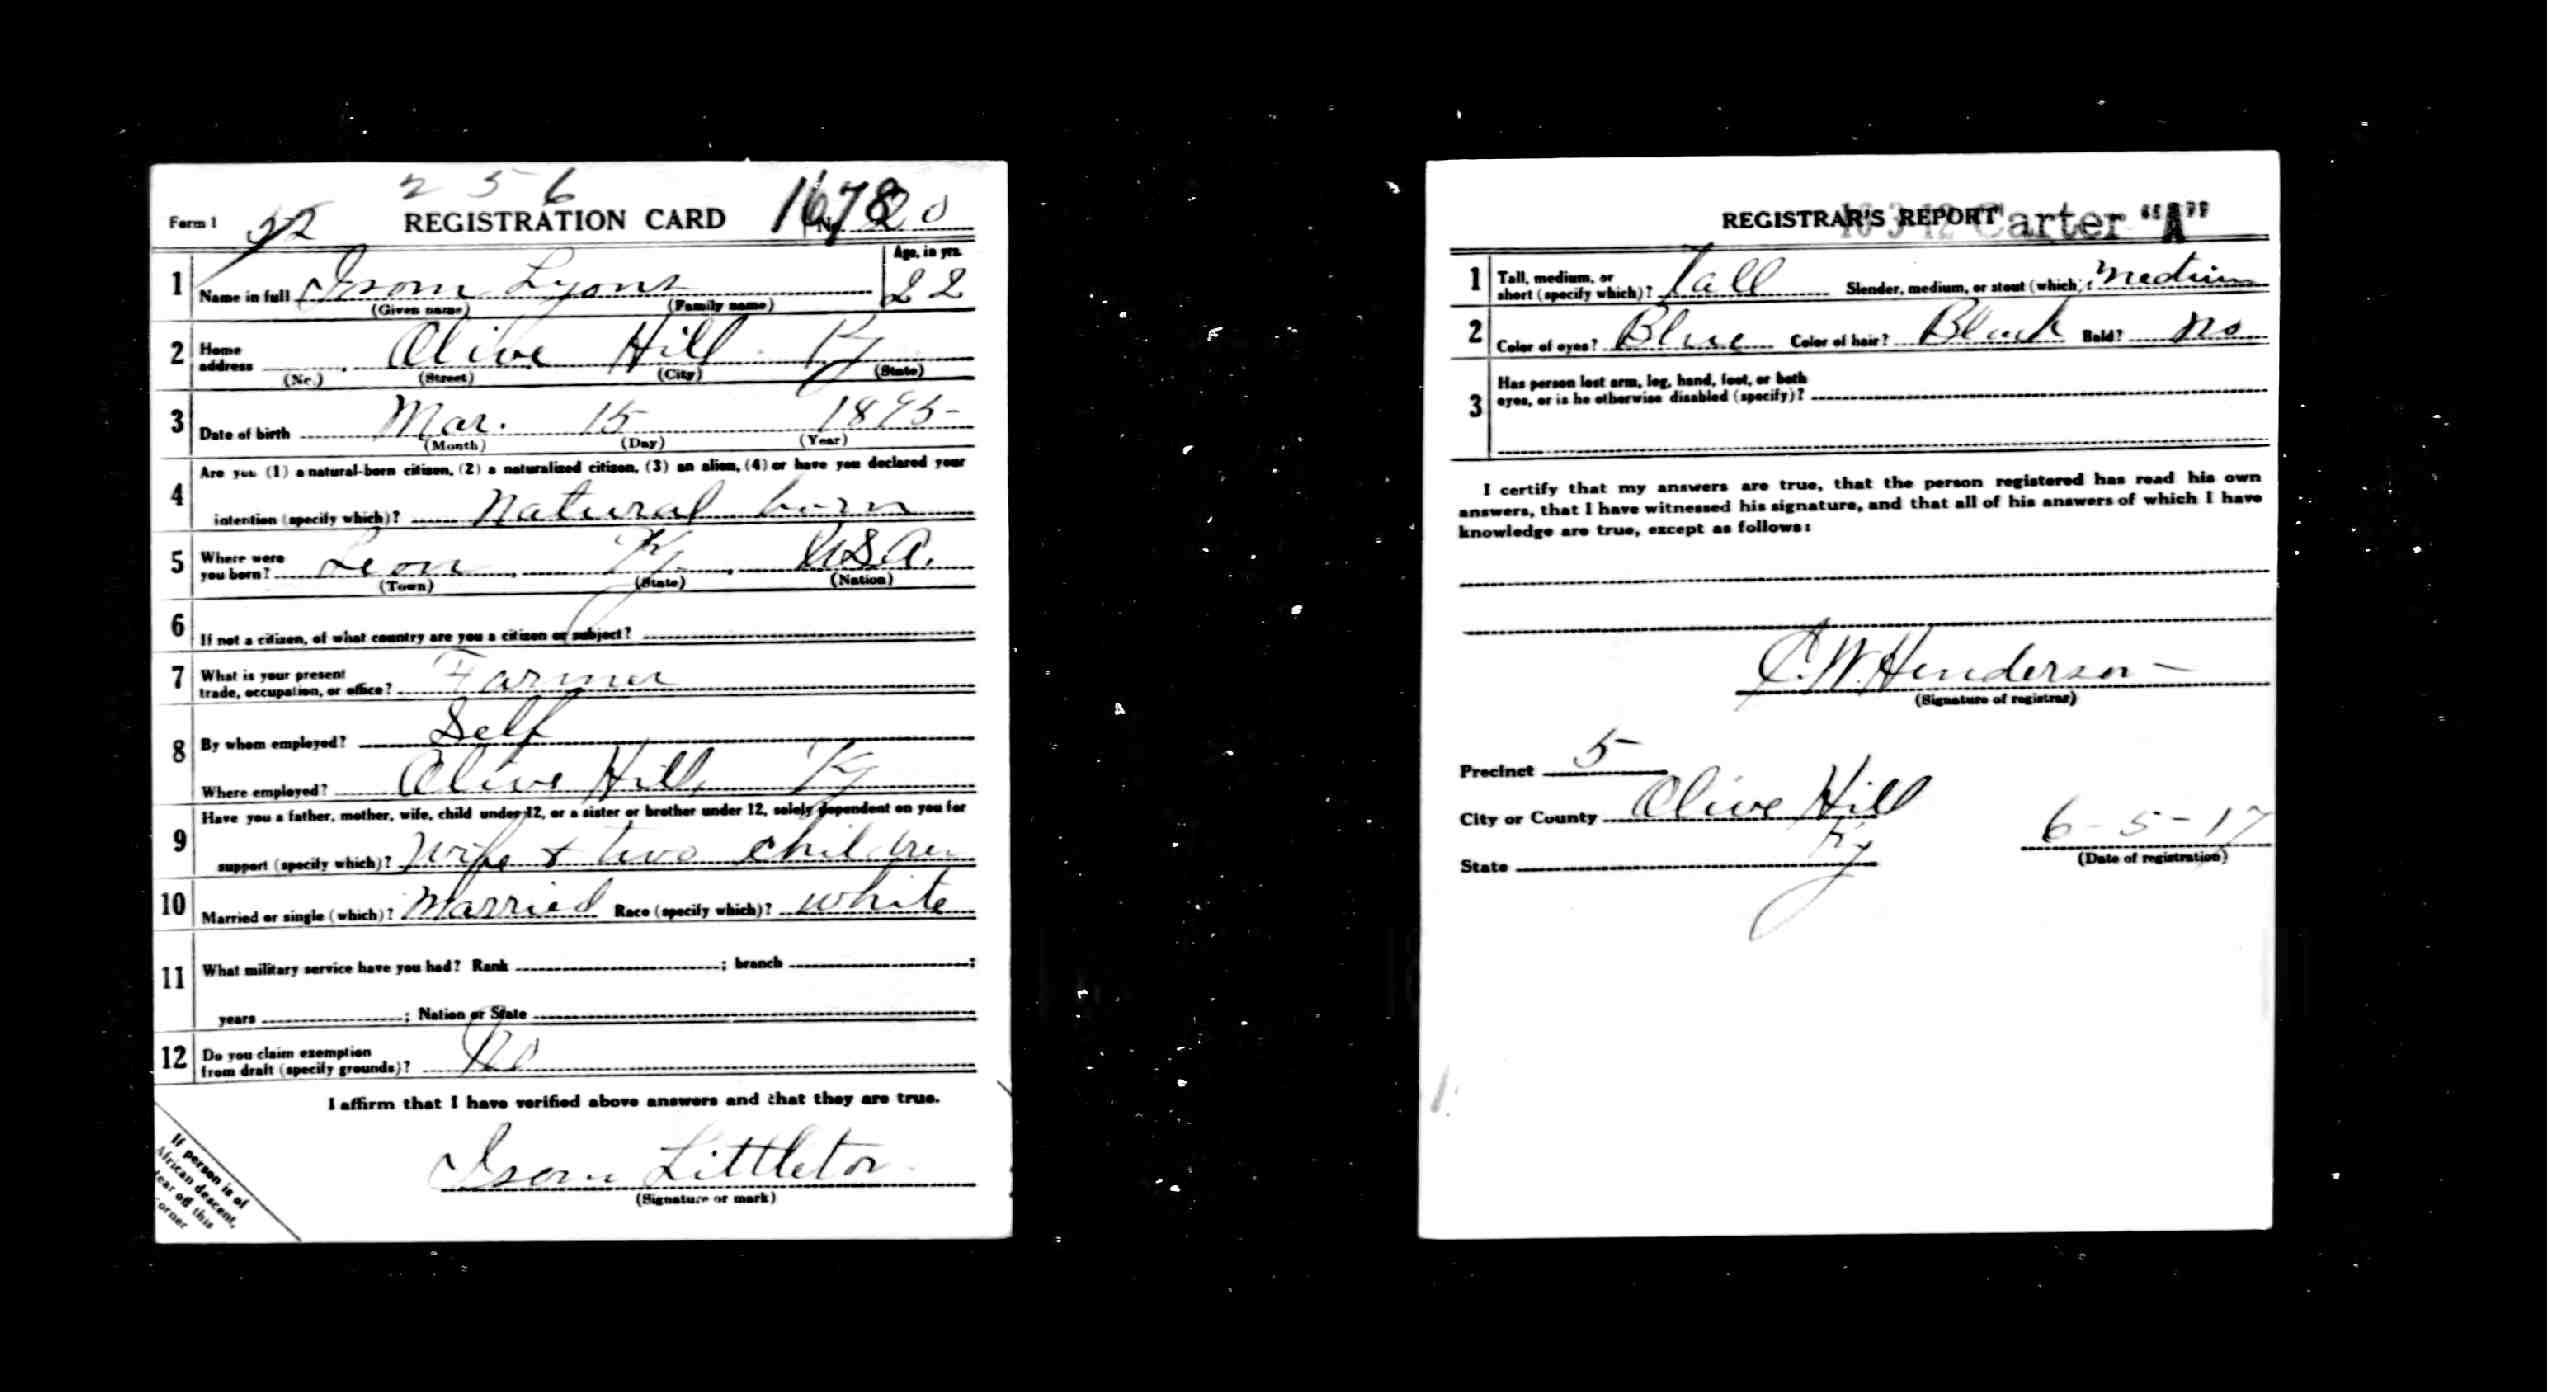 2 5 6
Form 1 REGISTRATION CARD 1678 No. 20
Age, in yrs.
1 Name in full Isom Lyons 22
(Given name) (Family name)
2 Home address Olive Hill Ky
(No.) (Street) (City) (State)
3 Date of birth Mar. 15 1895
(Month) (Day) (Year)
4 Are you (1) a natural-born citizen, (2) a naturalized citizen, (3) an alien, (4) or have you declared your
intention (specify which)? Natural born
5 Where were
you born? Leon Ky. U.S.A.
(Town) (State) (Nation)
6 If not a citizen, of what country are you a citizen or subject?
7 What is your present
trade, occupation, or office? Farmer
8 By whom employed? Self
Where employed? Olive Hill, Ky
9 Have you a father, mother, wife, child under 12, or a sister or brother under 12, solely dependent on you for
support (specify which)? Wife & two children
10 Married or single (which)? Married Race (specify which)? white
11 What military service have you had? Rank ; branch ;
years ; Nation or State
12 Do you claim exemption
from draft (specify grounds)? No
I affirm that I have verified above answers and that they are true.
Isom Littleton
(Signature or mark)
If person is of
African descent,
tear off this
corner
REGISTRAR'S REPORT Carter "A"
1 Tall, medium, or
short (specify which)? Tall Slender, medium, or stout (which)? Medium
2 Color of eyes? Blue Color of hair? Black Bald? No
3 Has person lost arm, leg, hand, foot, or both
eyes, or is he otherwise disabled (specify)?
I certify that my answers are true, that the person registered has read his own
answers, that I have witnessed his signature, and that all of his answers of which I have
knowledge are true, except as follows:
C.W. Henderson
(Signature of registrar)
Precinct 5
City or County Olive Hill
State Ky
6-5-17
(Date of registration)